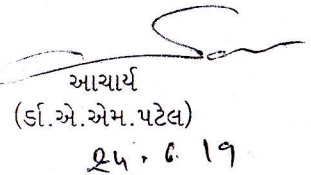 આચાર્ય
(ર્ડા.એ.એમ.પટેલ)
24.6.19